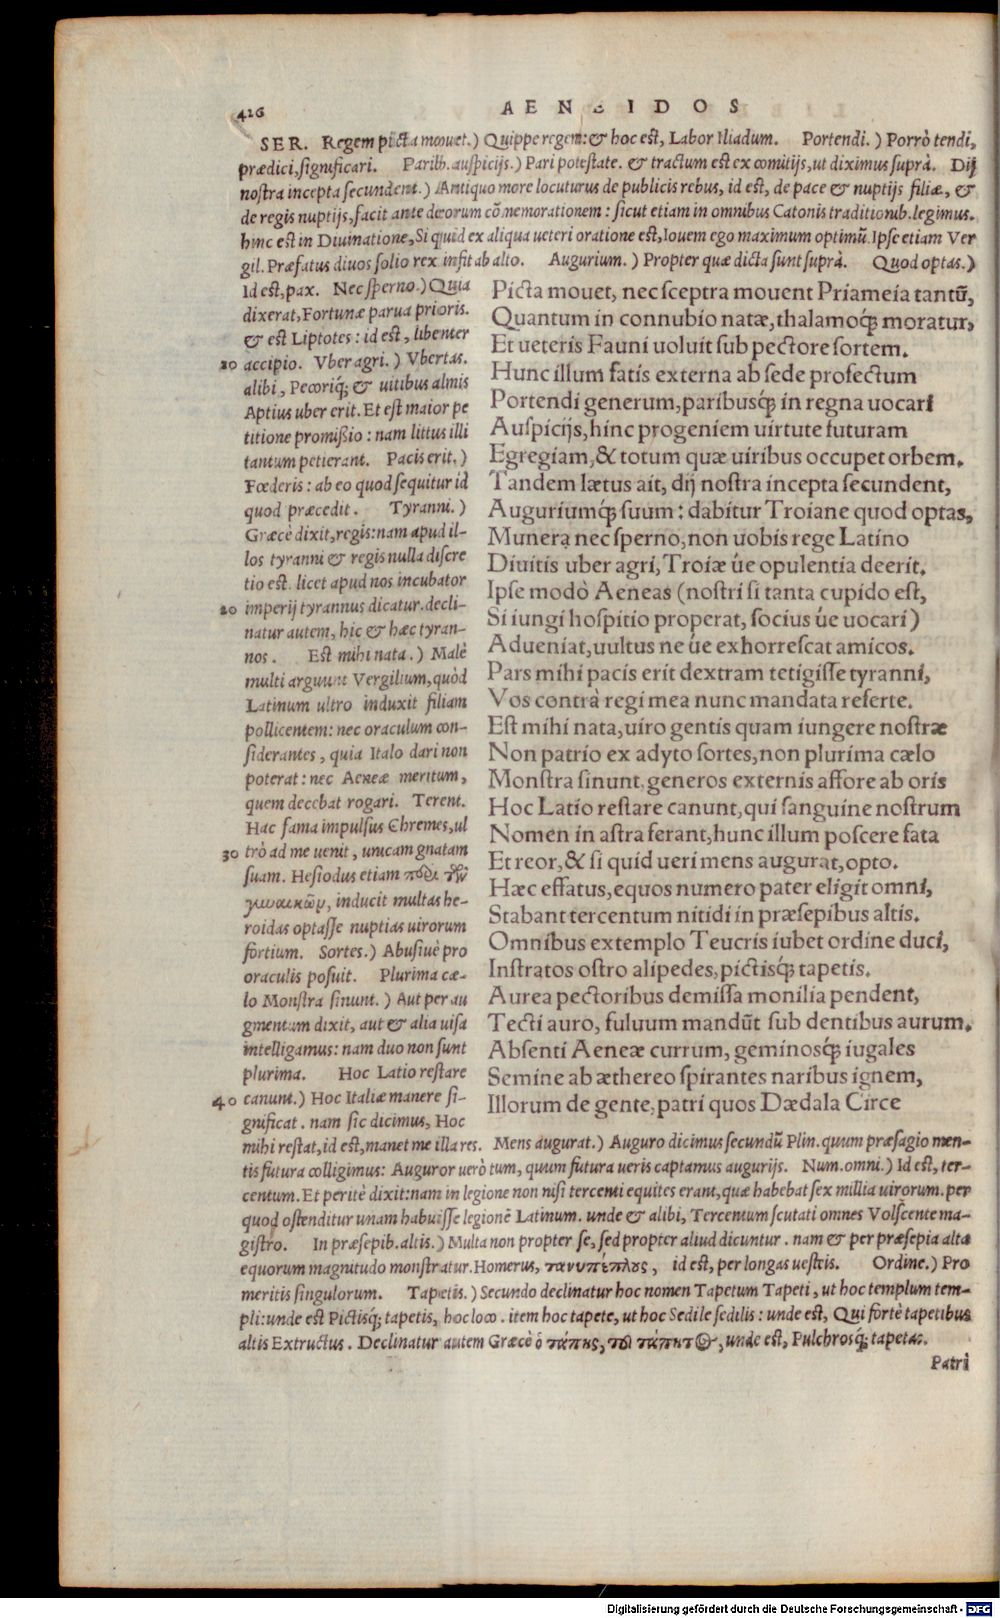 426
AENEIDOS
SER. Regem picta mouet.) Quippe regem: & hoc est, Labor Iliadum. Portendi.) Porrò tendi,
prædici, significari. Parib. auspicijs.) Pari potestate. & tractum est ex comitijs, ut diximus suprà. Dij
nostra incepta secundent.) Antiquo more locuturus de publicis rebus, id est, de pace & nuptijs filiæ, &
de regis nuptijs, facit ante deorum cōmemorationem: sicut etiam in omnibus Catonis traditionib. legimus.
hinc est in Diuinatione, Si quid ex aliqua ueteri oratione est, Iouem ego maximum optimū. Ipse etiam Ver
gil. Præfatus diuos solio rex infit ab alto. Augurium.) Propter quæ dicta sunt suprà. Quod optas.)
Id est, pax. Nec sperno.) Quia
dixerat, Fortunæ parua prioris.
& est Liptotes: id est, libenter
20 accipio. Vber agri.) Vbertas.
alibi, Pecoriq́; & uitibus almis
Aptius uber erit. Et est maior pe
titione promißio: nam littus illi
tantum petierant. Pacis erit.)
Fœderis: ab eo quod sequitur id
quod præcedit. Tyranni.)
Græcè dixit, regis: nam apud il-
los tyranni & regis nulla discre
tio est. licet apud nos incubator
20 imperij tyrannus dicatur. decli-
natur autem, hic & hæc tyran-
nos. Est mihi nata.) Malè
multi arguunt Vergilium, quòd
Latinum ultro induxit filiam
pollicentem: nec oraculum con-
siderantes, quia Italo dari non
poterat: nec Aeneæ meritum,
quem decebat rogari. Terent.
Hac fama impulsus Chremes, ul
30 trò ad me uenit, unicam gnatam
suam. Hesiodus etiam περὶ τῶν
γυναικῶν, inducit multas he-
roidas optasse nuptias uirorum
fortium. Sortes.) Abusiuè pro
oraculis posuit. Plurima cæ-
lo Monstra sinunt.) Aut per au
gmentum dixit, aut & alia uisa
intelligamus: nam duo non sunt
plurima. Hoc Latio restare
40 canunt.) Hoc Italiæ manere si-
gnificat. nam sic dicimus, Hoc
Picta mouet, nec sceptra mouent Priameia tantū,
Quantum in connubio natæ, thalamoq́; moratur,
Et ueteris Fauni uoluit sub pectore sortem.
Hunc illum fatis externa ab sede profectum
Portendi generum, paribusq́; in regna uocari
Auspicijs, hinc progeniem uirtute futuram
Egregiam, & totum quæ uiribus occupet orbem.
Tandem lætus ait, dij nostra incepta secundent,
Auguriumq́; suum: dabitur Troiane quod optas,
Munera nec sperno, non uobis rege Latino
Diuitis uber agri, Troiæ úe opulentia deerit.
Ipse modò Aeneas (nostri si tanta cupido est,
Si iungi hospitio properat, socius úe uocari)
Adueniat, uultus ne úe exhorrescat amicos.
Pars mihi pacis erit dextram tetigisse tyranni,
Vos contrà regi mea nunc mandata referte.
Est mihi nata, uiro gentis quam iungere nostræ
Non patrio ex adyto sortes, non plurima cælo
Monstra sinunt, generos externis affore ab oris
Hoc Latio restare canunt, qui sanguine nostrum
Nomen in astra ferant, hunc illum poscere fata
Et reor, & si quid ueri mens augurat, opto.
Hæc effatus, equos numero pater eligit omni,
Stabant tercentum nitidi in præsepibus altis.
Omnibus extemplo Teucris iubet ordine duci,
Instratos ostro alipedes, pictisq́; tapetis.
Aurea pectoribus demissa monilia pendent,
Tecti auro, fuluum mandūt sub dentibus aurum.
Absenti Aeneæ currum, geminosq́; iugales
Semine ab æthereo spirantes naribus ignem,
Illorum de gente, patri quos Dædala Circe
mihi restat, id est, manet me illa res. Mens augurat.) Auguro dicimus secundū Plin. quum præsagio men-
tis futura colligimus: Auguror uerò tum, quum futura ueris captamus augurijs. Num. omni.) Id est, ter-
centum. Et peritè dixit: nam in legione non nisi tercenti equites erant, quæ habebat sex millia uirorum. per
quod ostenditur unam habuisse legionē Latinum. unde & alibi, Tercentum scutati omnes Volscente ma-
gistro. In præsepib. altis.) Multa non propter se, sed propter aliud dicuntur. nam & per præsepia alta
equorum magnitudo monstratur. Homerus, τανυπέπλους, id est, per longas uestes. Ordine.) Pro
meritis singulorum. Tapetis.) Secundo declinatur hoc nomen Tapetum Tapeti, ut hoc templum tem-
pli: unde est Pictisq́; tapetis, hoc loco. item hoc tapete, ut hoc Sedile sedilis: unde est, Qui fortè tapetibus
altis Extructus. Declinatur autem Græcè ὁ τάπης, τοῦ τάπητος, unde est, Pulchrosq́; tapetas.
Patri
Digitalisierung gefördert durch die Deutsche Forschungsgemeinschaft - DFG